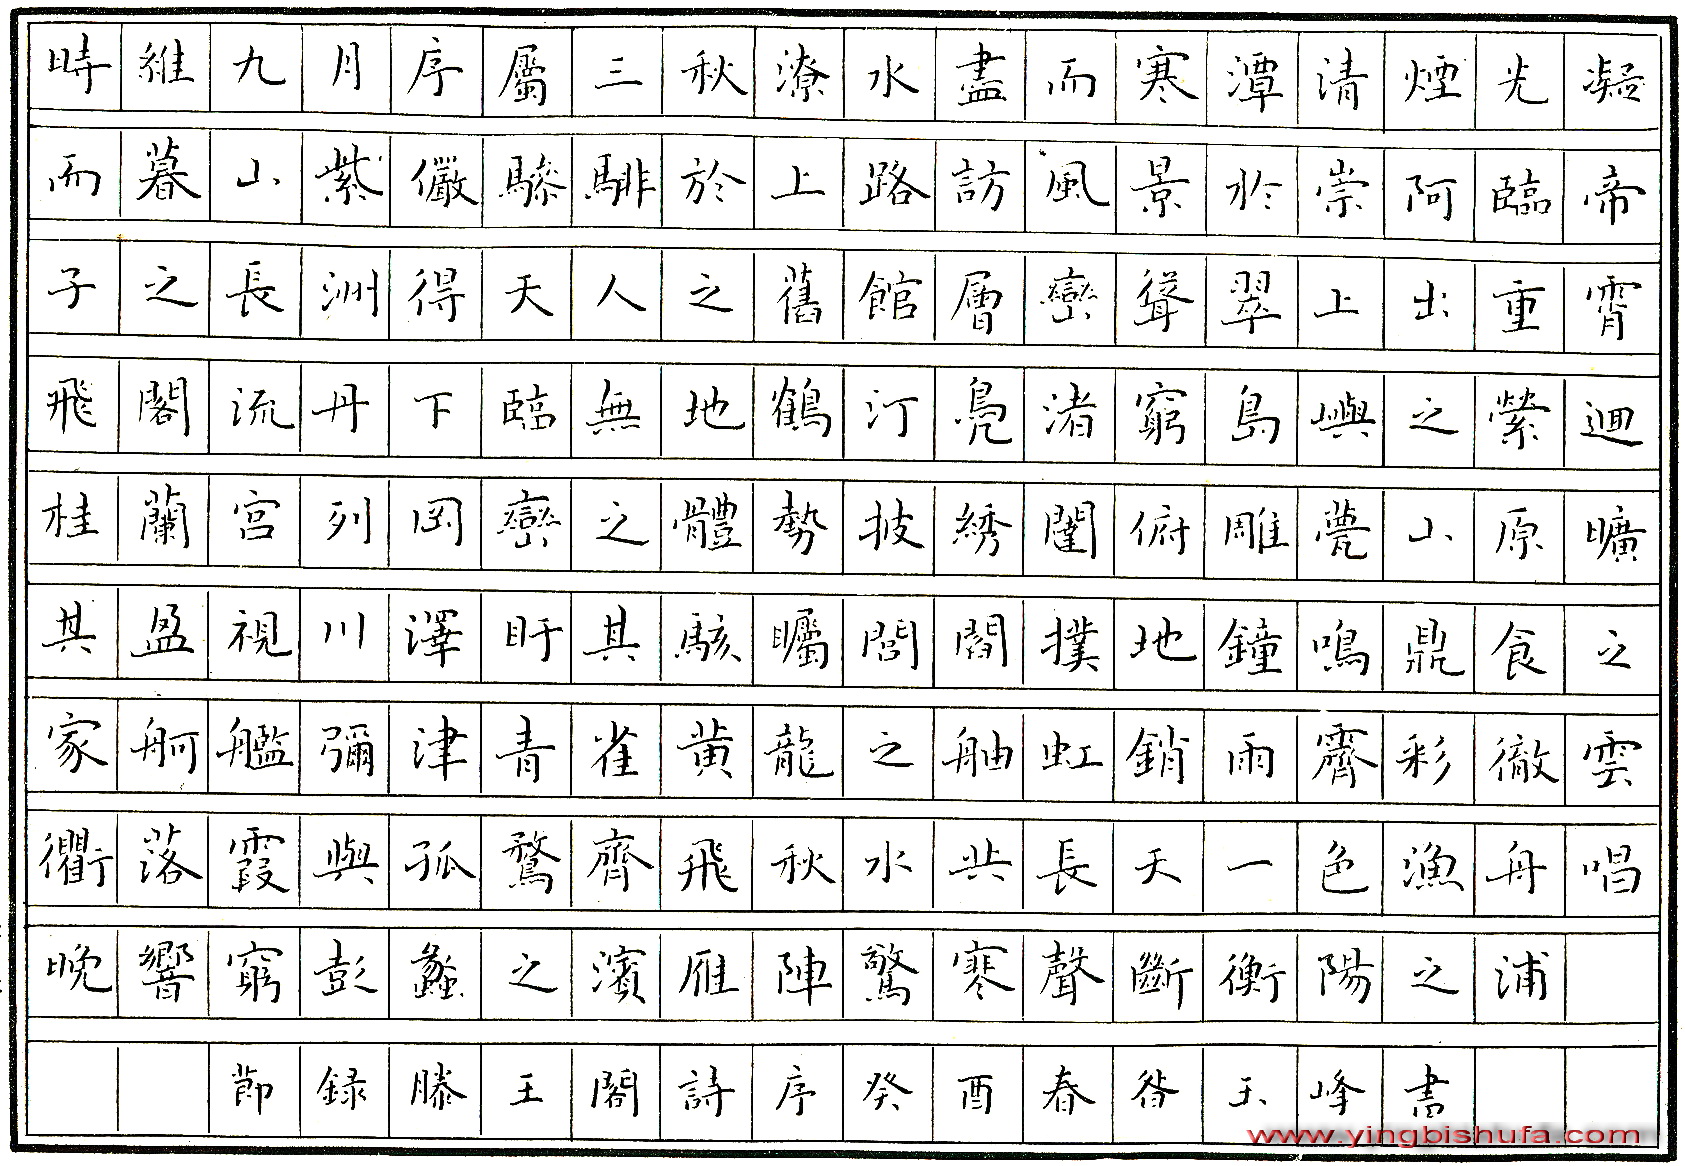 時維九月序屬三秋潦水盡而寒潭清煙光凝
而暮山紫儼驂騑於上路訪風景於崇阿臨帝
子之長洲得天人之舊館層巒聳翠上出重霄
飛閣流丹下臨無地鶴汀鳧渚窮島嶼之縈迴
桂蘭宮列岡巒之體勢披绣闥俯雕甍山原曠
其盈視川澤盱其駭矚閭閻撲地鐘鳴鼎食之
家舸艦彌津青雀黃龍之舳虹銷雨霽彩徹雲
衢落霞與孤鶩齊飛秋水共長天一色漁舟唱
晚響窮彭蠡之濱雁陣驚寒聲斷衡陽之浦
節録滕王閣詩序癸酉春 王峰書
www.yingbishufa.com